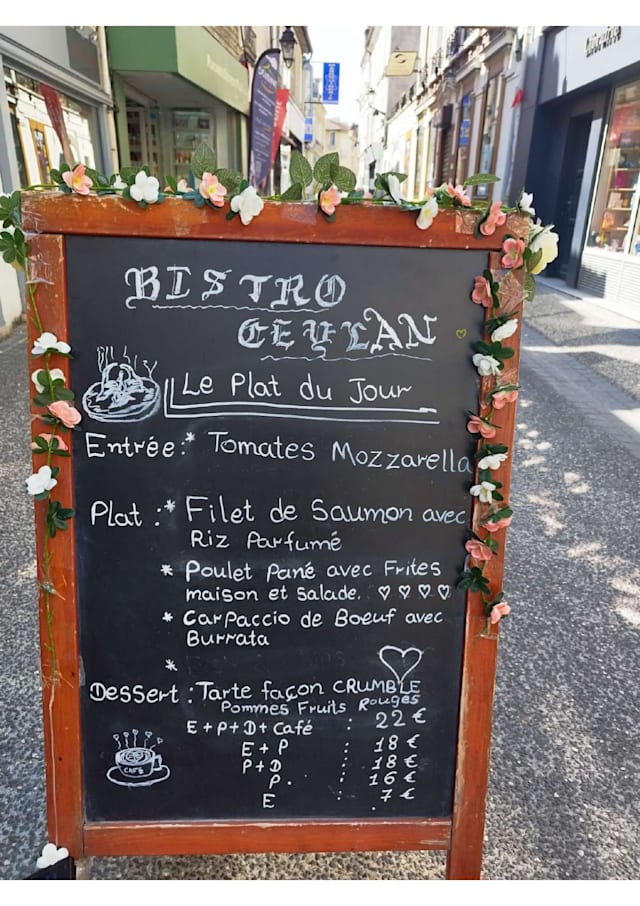 BISTRO
CEYLAN
Le Plat du Jour
Entrée:* Tomates Mozzarella
Plat :* Filet de Saumon avec
Riz Parfumé
* Poulet Pané avec Frites
maison et salade.
* Carpaccio de Boeuf avec
Burrata
*
Dessert : Tarte façon CRUMBLE
Pommes Fruits Rouges
E+P+D+Café : 22 €
E+P : 18 €
P+D : 18 €
P. : 16 €
E : 7 €
CAFÉ